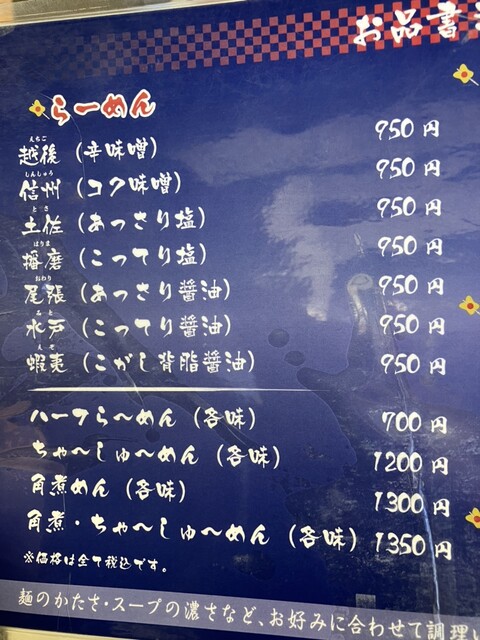 お品書
らーめん
えちご
越後（辛味噌） 950円
しんしゅう
信州（コク味噌） 950円
とさ
土佐（あっさり塩） 950円
はりま
播磨（こってり塩） 950円
おわり
尾張（あっさり醤油） 950円
みと
水戸（こってり醤油） 950円
えぞ
蝦夷（こがし背脂醤油） 950円
ハーフら〜めん（各味） 700円
ちゃ〜しゅ〜めん（各味） 1200円
角煮めん（各味） 1300円
角煮・ちゃ〜しゅ〜めん（各味） 1350円
※価格は全て税込です。
麺のかたさ・スープの濃さなど、お好みに合わせて調理い